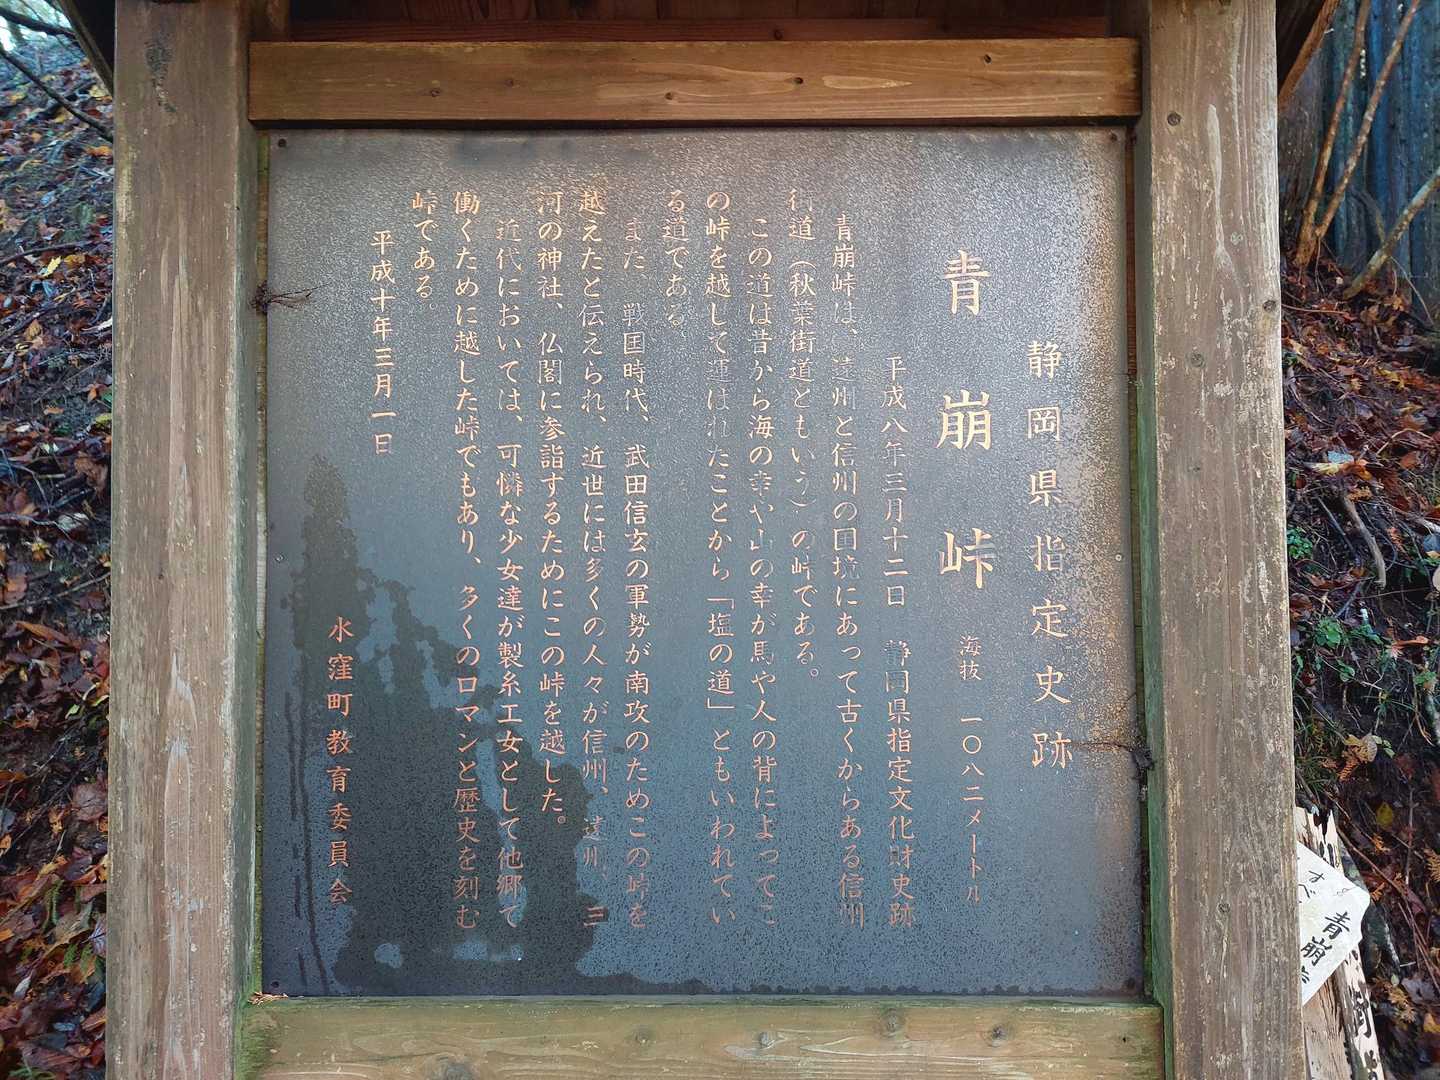 静岡県指定史跡
青崩峠 海抜 一〇八二メートル
平成八年三月十二日 静岡県指定文化財史跡
青崩峠は、遠州と信州の国境にあって古くからある信州
街道（秋葉街道ともいう）の峠である。
この道は昔から海の幸や山の幸が馬や人の背によってこ
の峠を越して運ばれたことから「塩の道」ともいわれてい
る道である。
また、戦国時代、武田信玄の軍勢が南攻のためこの峠を
越えたと伝えられ、近世には多くの人々が信州、遠州、三
河の神社、仏閣に参詣するためにこの峠を越した。
近代においては、可憐な少女達が製糸工女として他郷で
働くために越した峠でもあり、多くのロマンと歴史を刻む
峠である。
平成十年三月一日
水窪町教育委員会
青崩